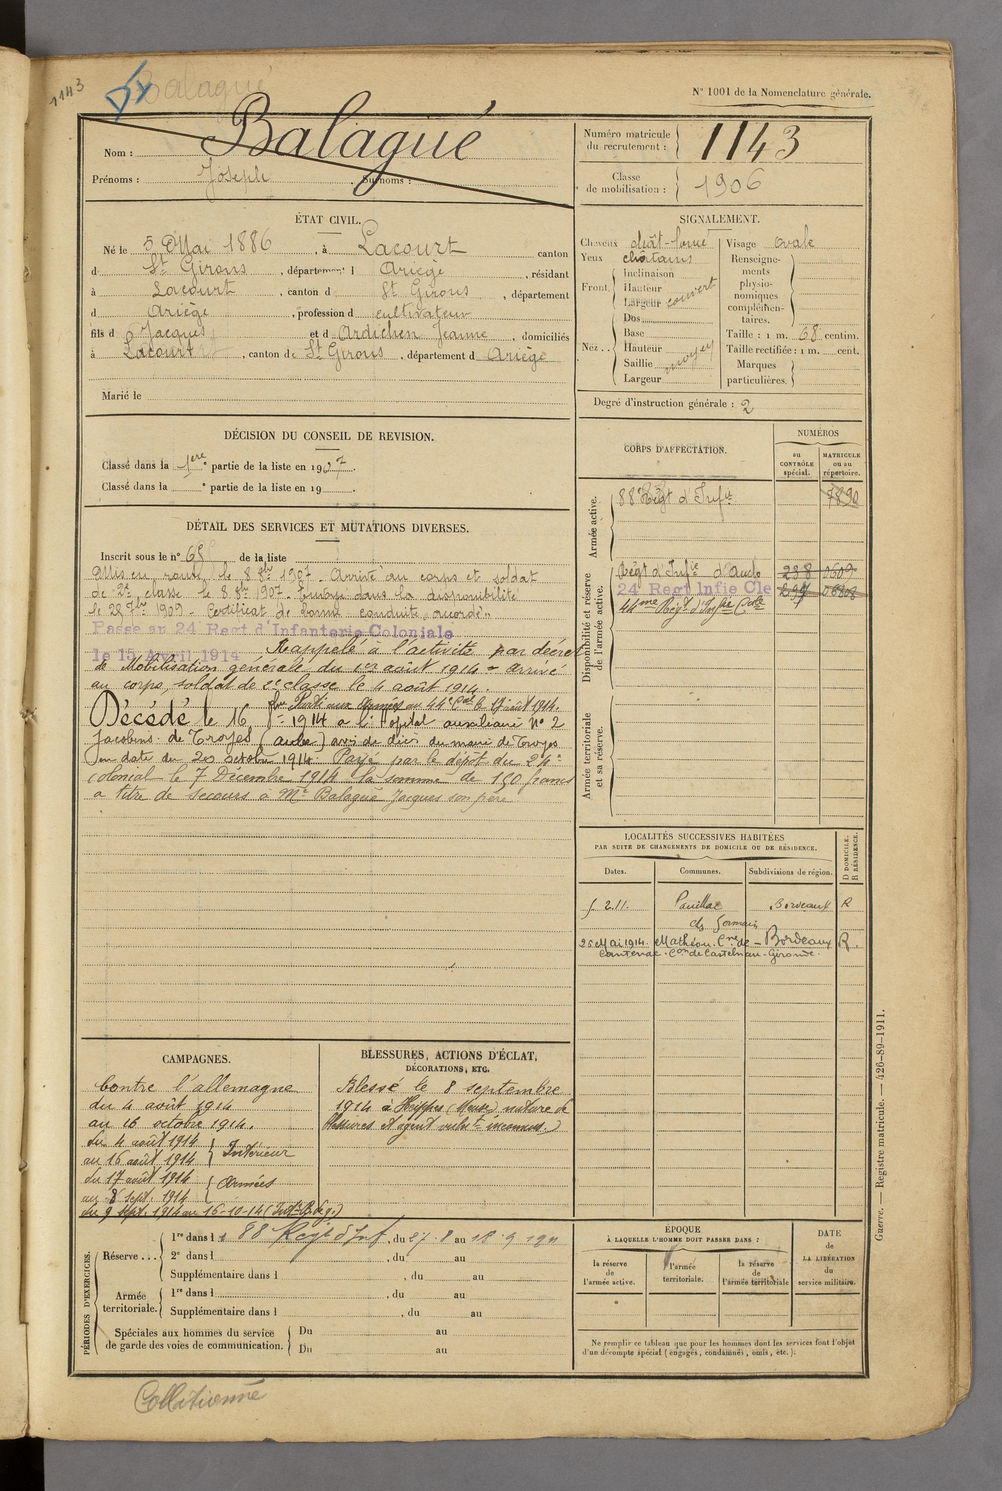 1143
Balagué
N° 1001 de la Nomenclature générale.
Nom : Balagué
Prénoms : Joseph Surnoms :
Numéro matricule du recrutement : 1143
Classe de mobilisation : 1906
ÉTAT CIVIL.
Né le 5 Mai 1886, à Lacourt canton
d St Girons, département d Ariège, résidant
à Lacourt, canton d St Girons, département
d Ariège, profession d cultivateur
fils d Jacques et d Ardichen Jeanne, domiciliés
à Lacourt, canton de St Girons, département d Ariège
Marié le
SIGNALEMENT.
Cheveux chât-foncé
Yeux châtains
Front. Inclinaison
Hauteur
Largeur couvert
Nez.. Dos
Base
Hauteur
Saillie moyen
Largeur
Visage ovale
Renseignements physionomiques complémentaires.
Taille : 1 m. 68 centim.
Taille rectifiée : 1 m. cent.
Marques particulières.
Degré d'instruction générale : 2
DÉCISION DU CONSEIL DE REVISION.
Classé dans la 1ère partie de la liste en 1907.
Classé dans la e partie de la liste en 19 .
DÉTAIL DES SERVICES ET MUTATIONS DIVERSES.
Inscrit sous le n° 65 de la liste
Mis en route le 8 8bre 1907. Arrivé au corps et soldat
de 2e classe le 8 8bre 1907. Envoyé dans la disponibilité
le 28 7bre 1909. Certificat de bonne conduite accordé.
Passe au 24 Regt d'Infanterie Coloniale
le 15 Avril 1914 Rappelé à l'activité par décret
de Mobilisation générale du 1er août 1914 - arrivé
au corps, soldat de 2e classe le 4 août 1914.
Parti aux Armées au 44e Cal le 17 août 1914.
Décédé le 16 8bre 1914 a l'Hopital auxiliaire N° 2
Jacobins de Troyes (aube) avis de décès du maire de Troyes
en date du 20 octobre 1914. Payé par le dépôt du 24e
colonial le 7 Décembre 1914 la somme de 150 francs
a titre de secours à Mr Balagué Jacques son père
CORPS D'AFFECTATION.
NUMÉROS
au CONTRÔLE spécial.
MATRICULE ou au répertoire.
Armée active.
88e Régt d'Infie 7890
Disponibilité et réserve de l'armée active.
Régt d'Infie d'Auch 238 0609
24 Regt Infie Cle
44me Régt d'Infie Cole
Armée territoriale et sa réserve.
LOCALITÉS SUCCESSIVES HABITÉES
PAR SUITE DE CHANGEMENTS DE DOMICILE OU DE RÉSIDENCE.
Dates. Communes. Subdivisions de région. D DOMICILE. R RÉSIDENCE.
2.11. Pauillac Bordeaux R
25 Mai 1914. Cne de - Bordeaux R.
Cantenac. Con de Castelnau - Gironde.
CAMPAGNES.
Contre l'allemagne
du 4 août 1914
au 16 octobre 1914.
du 4 août 1914
au 16 août 1914 } Intérieur
du 17 août 1914
au 8 sept. 1914 } Armées
du 9 sept. 1914 au 16-10-14
BLESSURES, ACTIONS D'ÉCLAT,
DÉCORATIONS, ETC.
Blessé le 8 septembre
1914 à (Meuse) nature de
blessures et agent vulnt inconnus.
PÉRIODES D'EXERCICES.
Réserve... 1re dans l e 88 Régt d'Inf, du 27 8 au 18 9 1911
2e dans l , du au
Supplémentaire dans l , du au
Armée territoriale. 1re dans l , du au
Supplémentaire dans l , du au
Spéciales aux hommes du service de garde des voies de communication. Du au
Du au
ÉPOQUE
À LAQUELLE L'HOMME DOIT PASSER DANS :
la réserve de l'armée active.
l'armée territoriale.
la réserve de l'armée territoriale
DATE de LA LIBÉRATION du service militaire.
Ne remplir ce tableau que pour les hommes dont les services font l'objet
d'un décompte spécial (engagés, condamnés, omis, etc.).
Guerre. — Registre matricule. — 426-89-1911.
Collationné